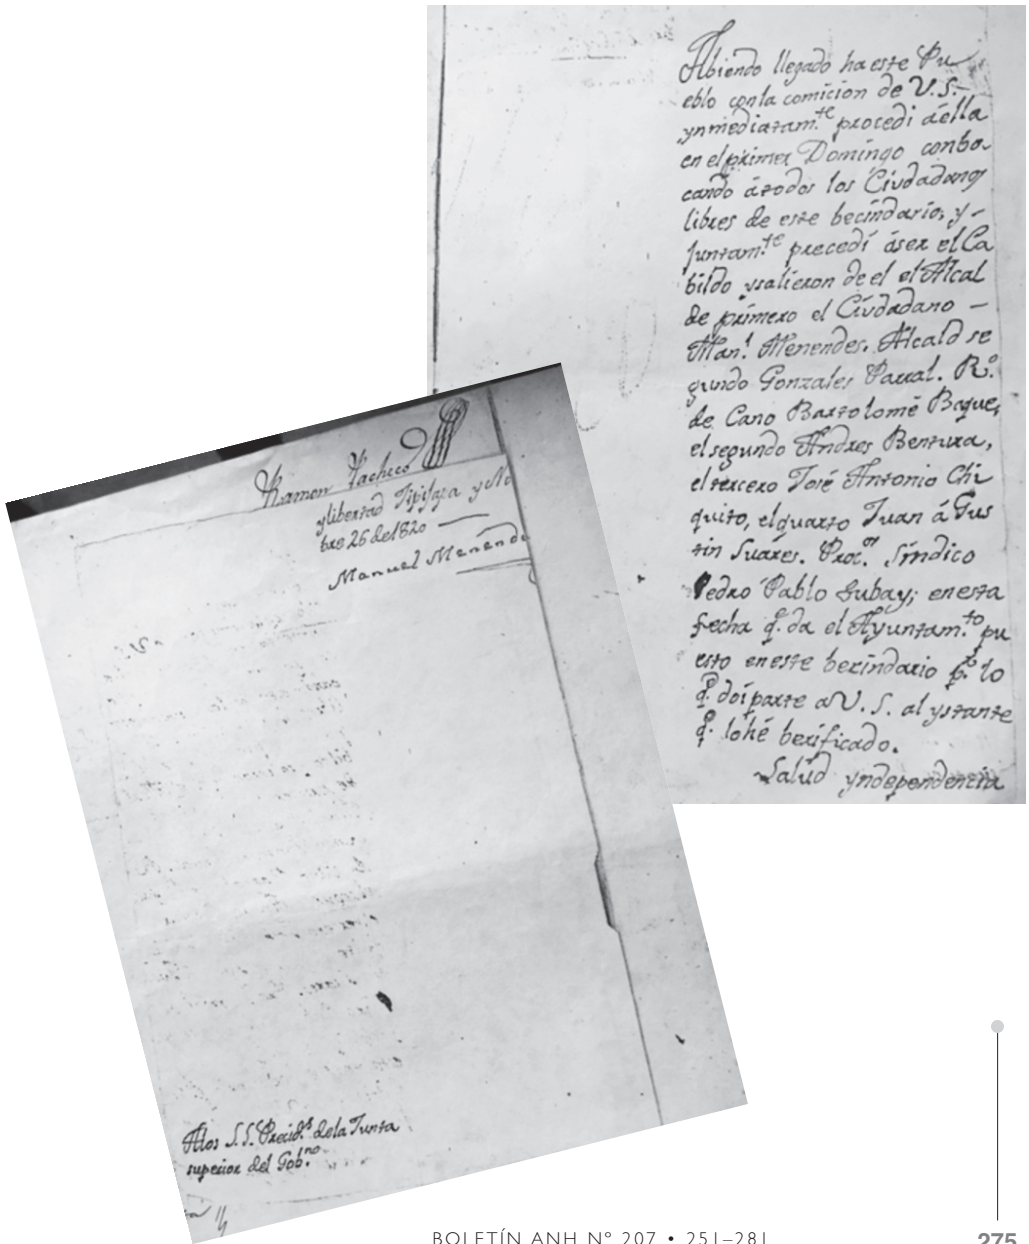 Abiendo llegado ha este Pu
eblo conla comicion de V.S.-
ynmediatam.te procedi áella
en el primer Domingo conbo
cando átodos los Ciudadanos
libres de este becindario, y -
Juntam.te precedi áser el Ca
bildo ysalieron de el el Alcal
de primero el Ciudadano -
Man.l Menendes. Alcald se
gundo Gonzales Parral. R.o
de Cano Bartolomé Baque,
el segundo Andres Bentura,
el tercero José Antonio Chi
quito, el quarto Juan á Gus
tin Suares. Proc.or Síndico
Pedro Pablo Gubay; en esta
fecha q.e da el Ayuntam.to pu
esto en este becindario p.r lo
q.e doi parte a V.S. al ystante
q.e lohé berificado.
Salud yndependencia
Ramon Pacheco
ylibertad Tipisapa y No
bre 26 de 1820
Manuel Menende
Alos S.S. Precid.s dela Junta
superior del Gob.no
BOLETÍN ANH Nº 207 • 251–281
275